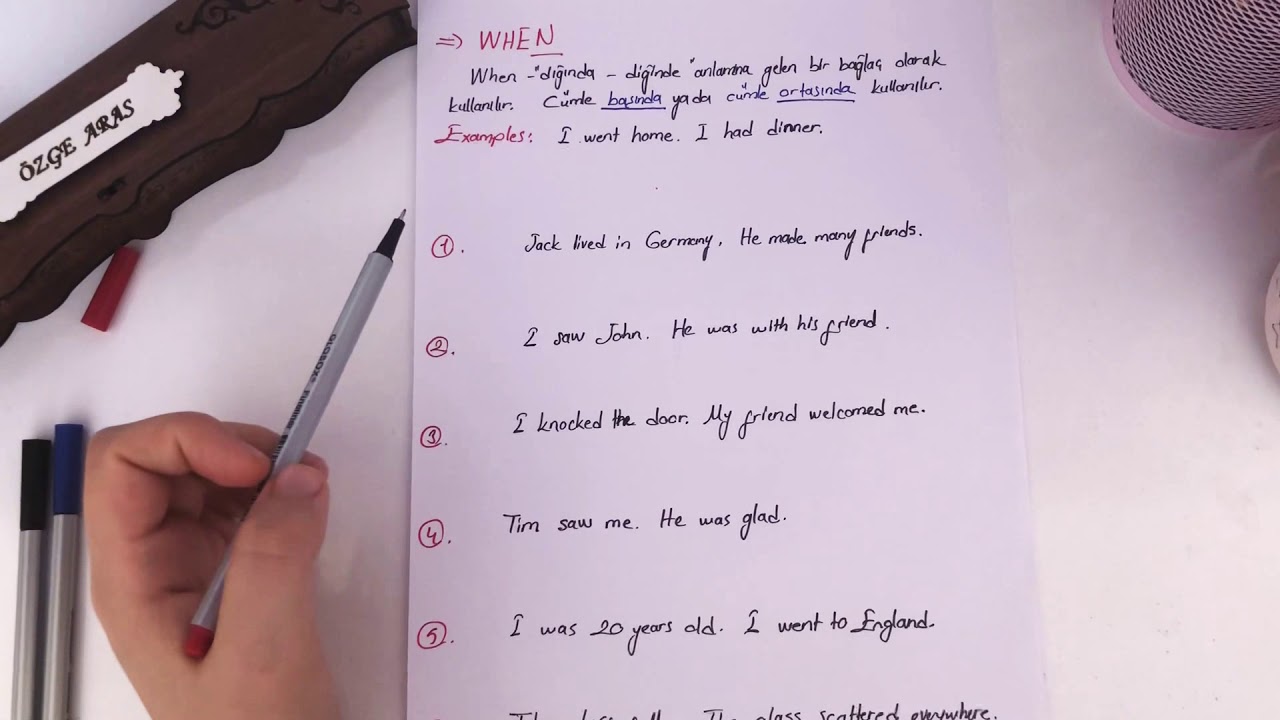 ÖZGE ARAS
⇒ WHEN
When -"dığında - diğinde" anlamına gelen bir bağlaç olarak
kullanılır. Cümle başında ya da cümle ortasında kullanılır.
Examples: I went home. I had dinner.
1. Jack lived in Germany. He made many friends.
2. I saw John. He was with his friend.
3. I knocked the door. My friend welcomed me.
4. Tim saw me. He was glad.
5. I was 20 years old. I went to England.
glass scattered everywhere.